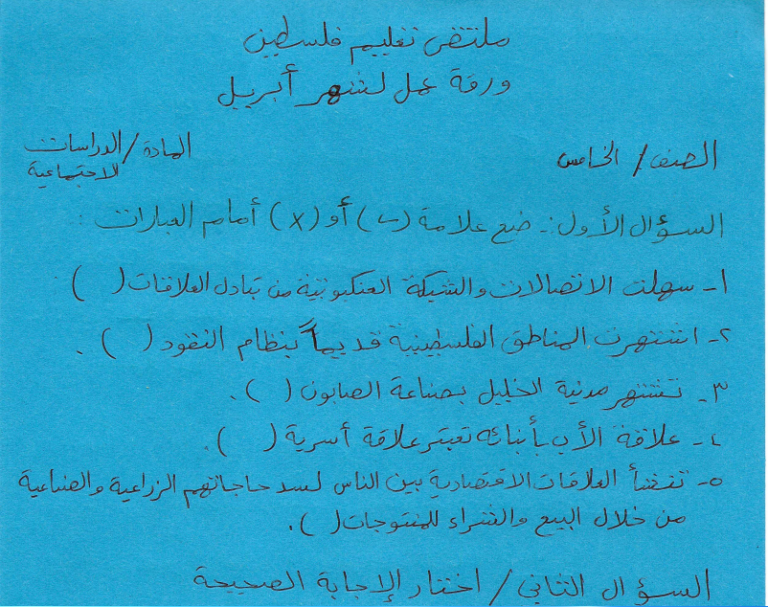 ملتقى تعليم فلسطين
ورقة عمل لشهر أبريل
الصف / الخامس
المادة / الدراسات الاجتماعية
السؤال الأول :- ضع علامة (✓) أو (x) أمام العبارات :
١- سهلت الاتصالات والشبكة العنكبوتية من تبادل العلاقات ( )
٢- اشتهرت المناطق الفلسطينية قديماً بنظام النقود ( ) .
٣- تشتهر مدنية الخليل بصناعة الصابون ( ) .
٤- علاقة الأب بأبنائه تعتبر علاقة أسرية ( ) .
٥- تنشأ العلاقات الاقتصادية بين الناس لسد حاجاتهم الزراعية والصناعية
من خلال البيع والشراء للمنتوجات ( ) .
السؤال الثاني / اختار الإجابة الصحيحة